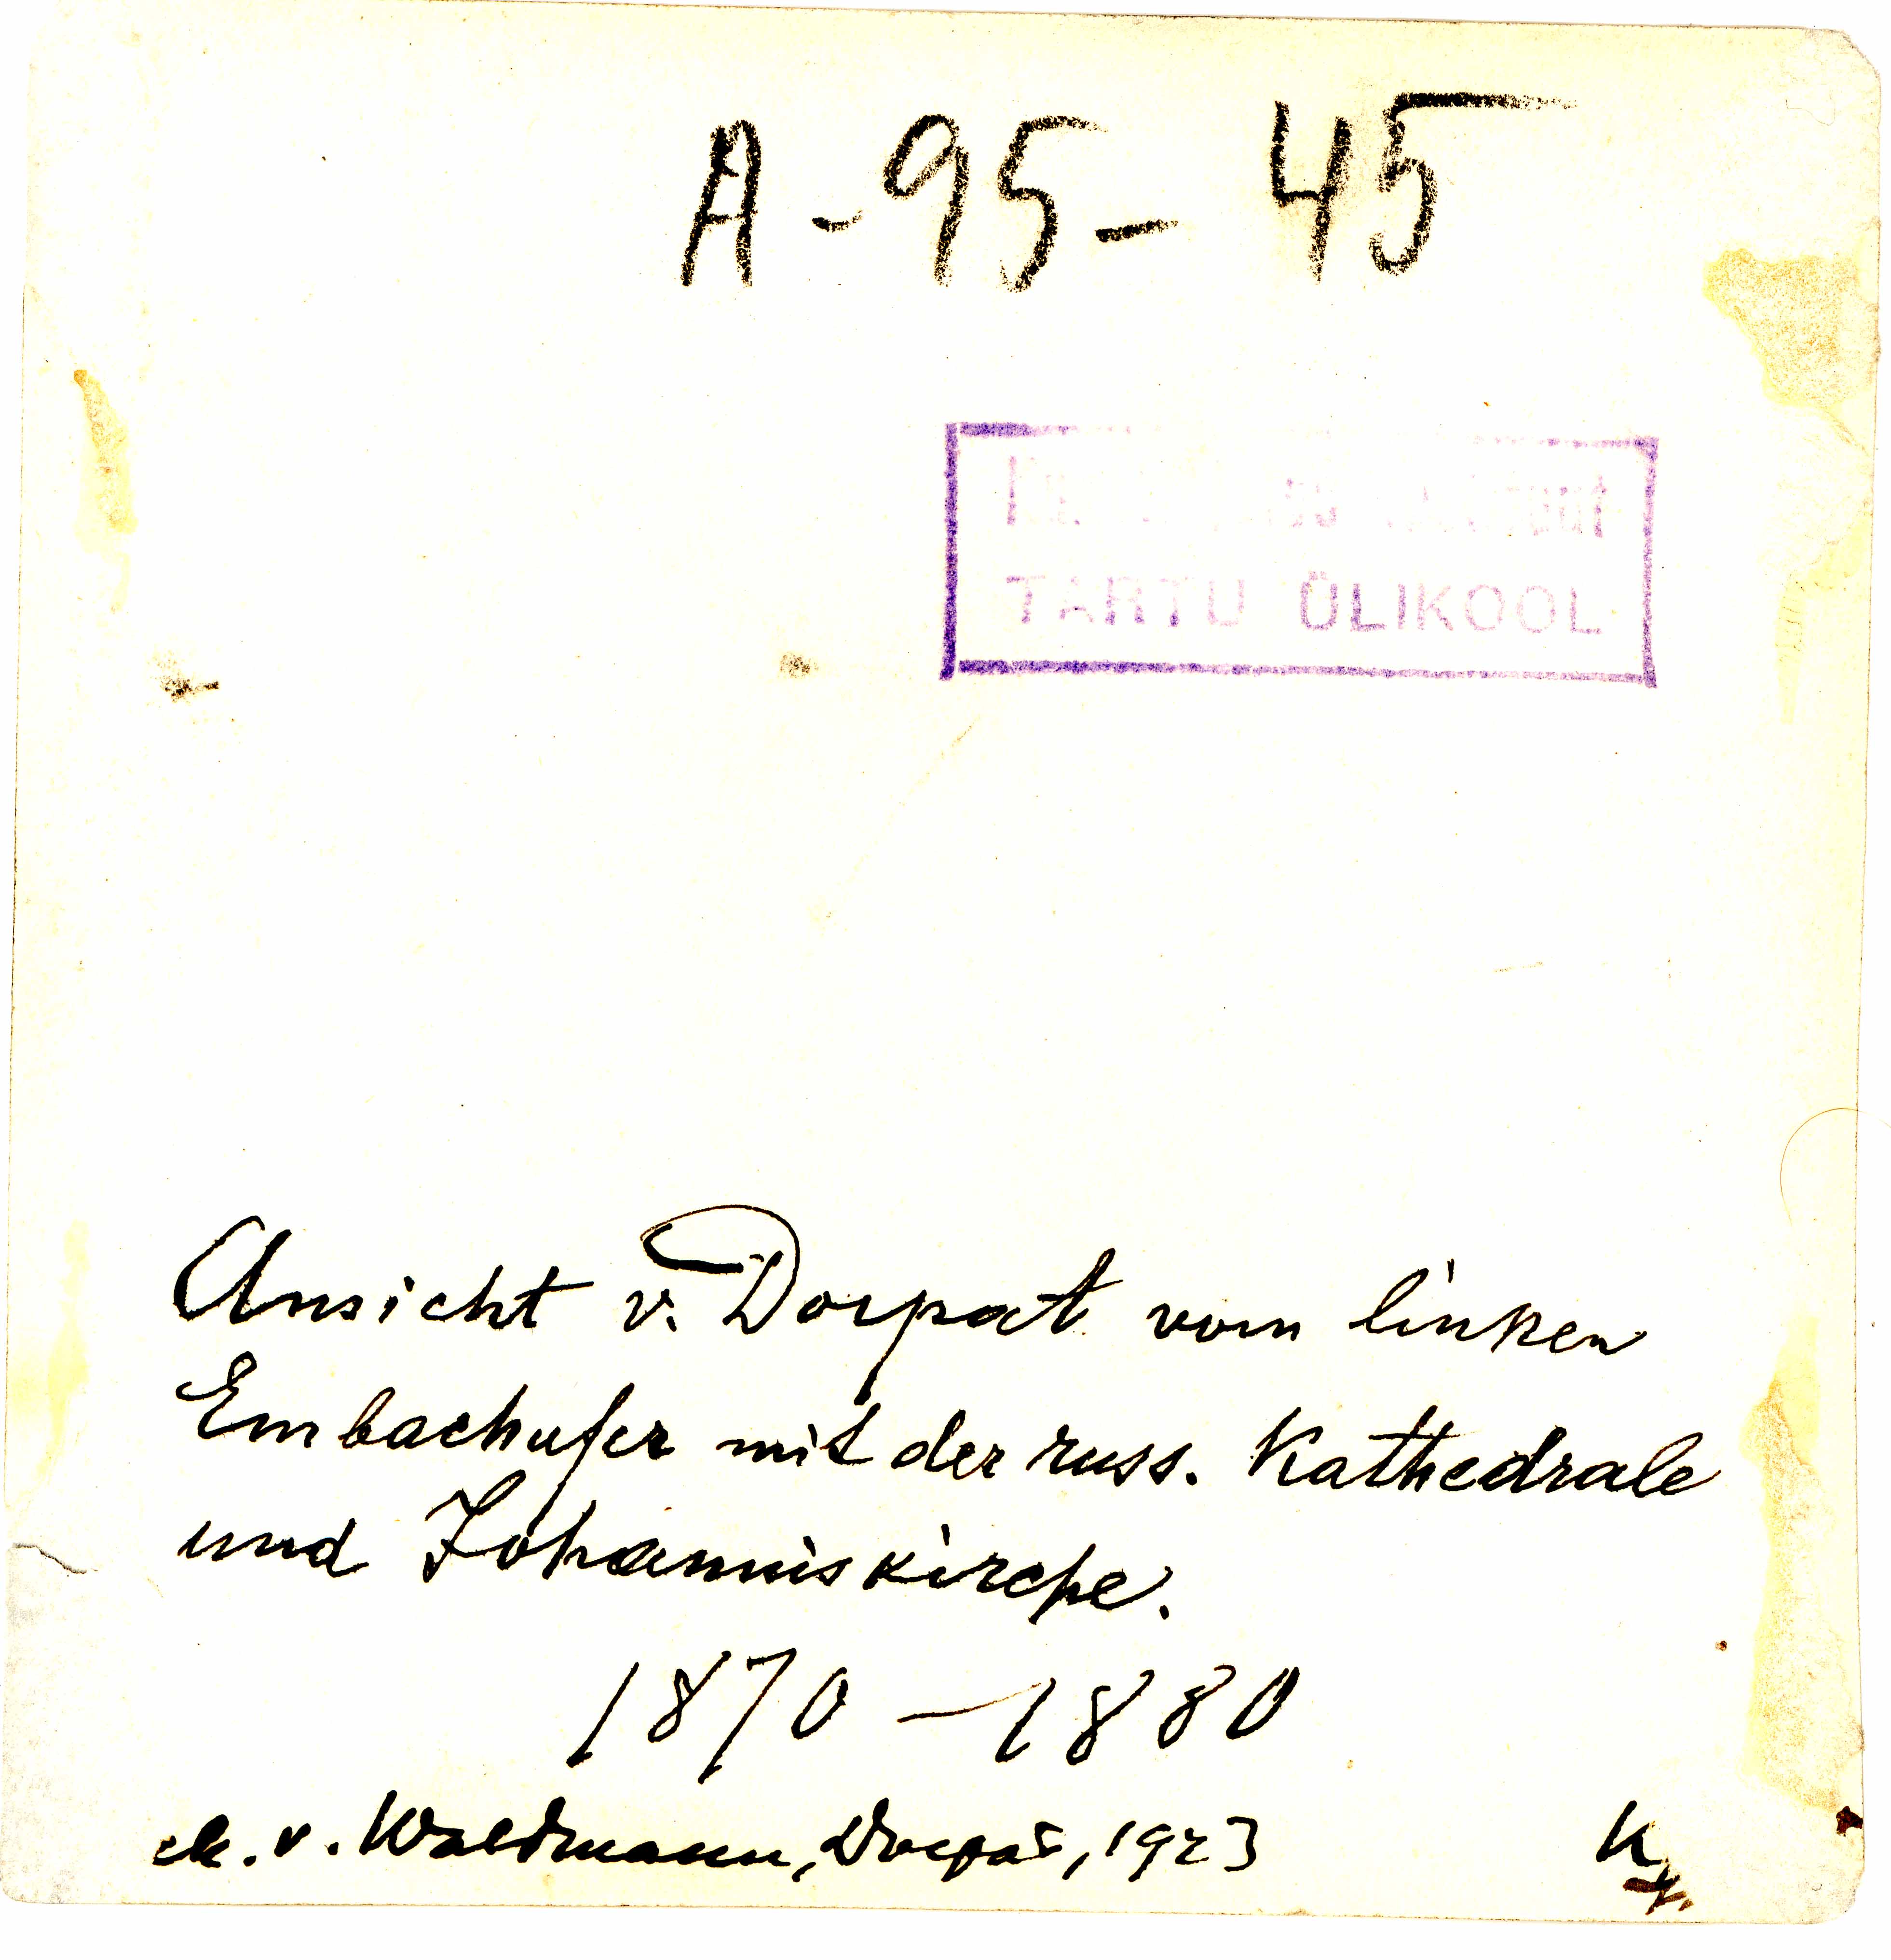 A-95-45
TARTU ÜLIKOOL
Ansicht v. Dorpat vom linken
Embachufer mit der russ. Kathedrale
und Johanniskirche.
1870-1880
v. Waldmann, Dorpat, 1923
K